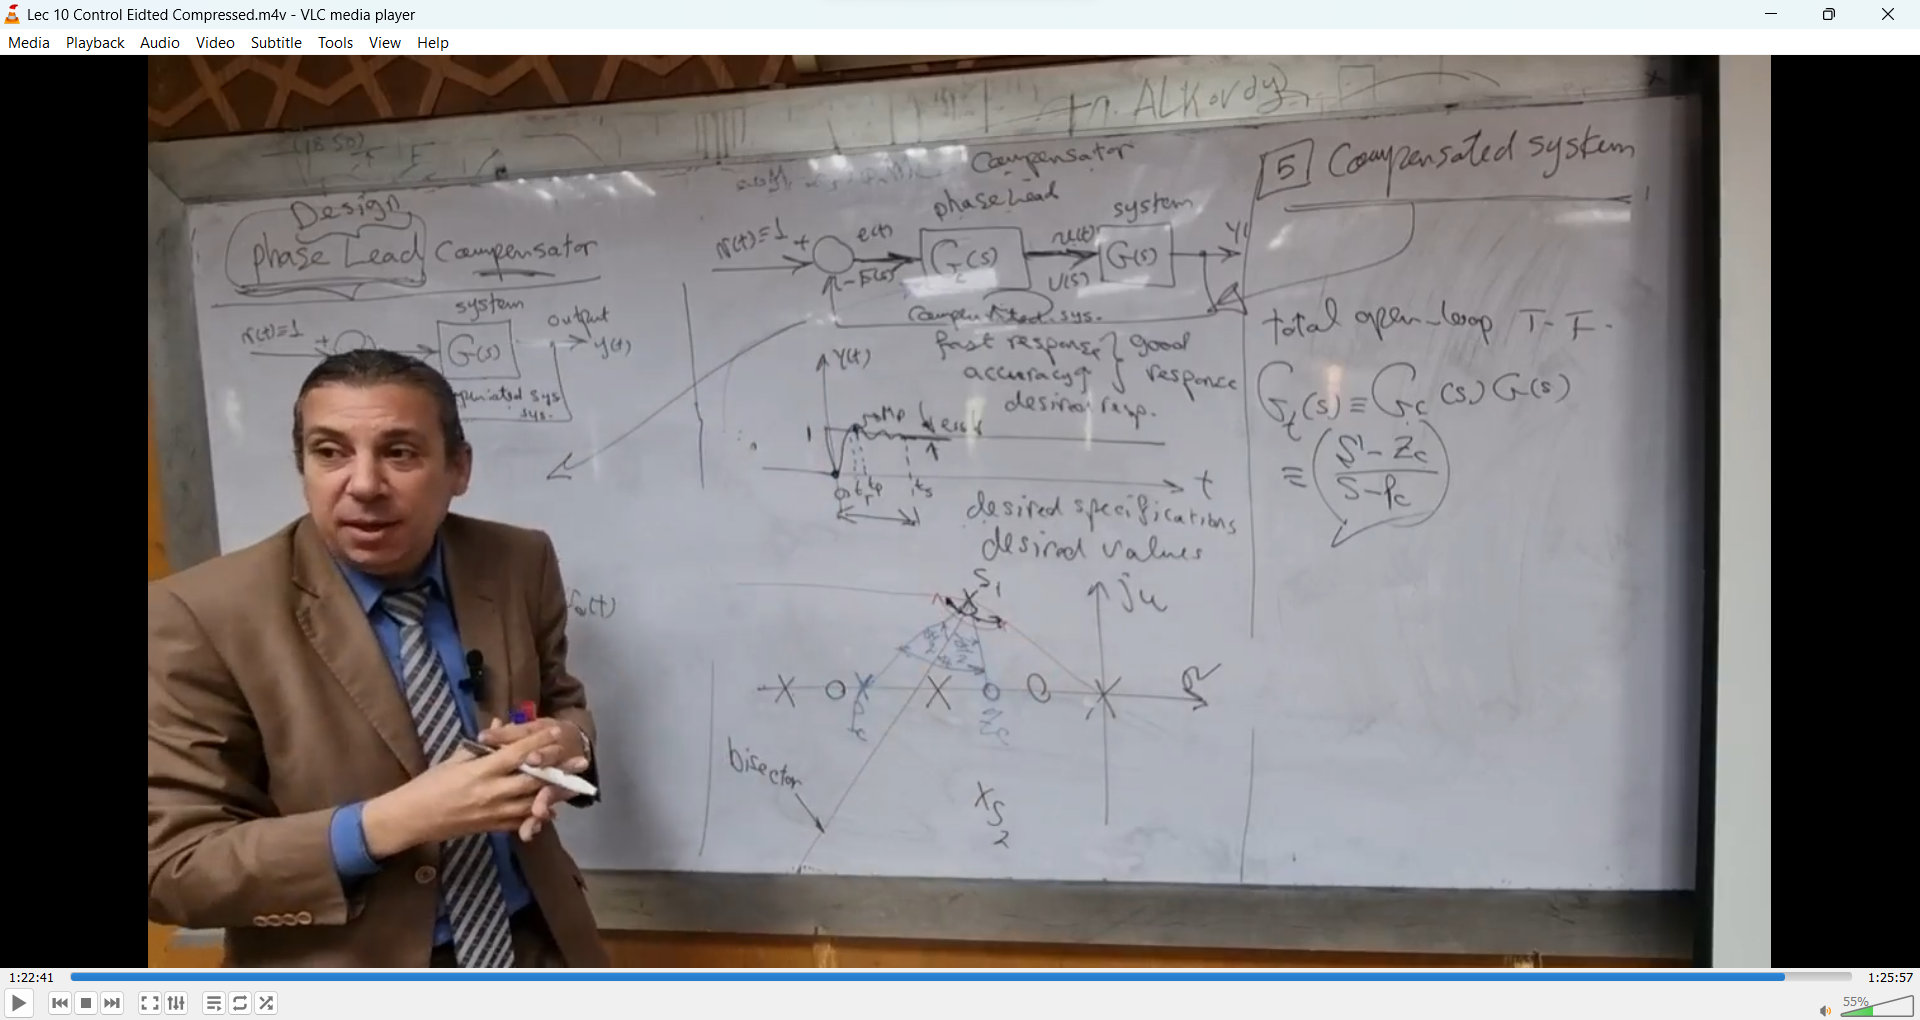 Lec 10 Control Eidted Compressed.m4v - VLC media player
Media Playback Audio Video Subtitle Tools View Help
ALKordy
(18.50)
Design
phase Lead Compensator
system
r(t)=1 +
G(s)
output
y(t)
sys.
Compensator
phase Lead
system
r(t)=1 +
e(t)
E(s)
Gc(s)
u(t)
U(s)
G(s)
-
sys.
fast response } good
accuracy } response
desired resp.
y(t)
Mp
ess
1
0 tr tp ts
t
desired specifications
desired values
S1
jω
σ
Pc
Zc
bisector
S2
5 Compensated system
total open-loop T.F.
Gt(s) = Gc(s) G(s)
≡ S - Zc
S - Pc
1:22:41
1:25:57
55%